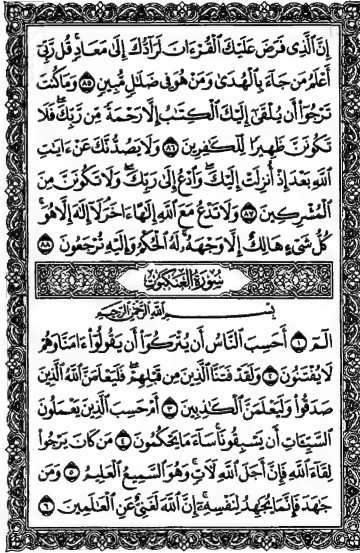 إِنَّ ٱلَّذِى فَرَضَ عَلَيْكَ ٱلْقُرْءَانَ لَرَآدُّكَ إِلَىٰ مَعَادٍ ۚ قُل رَّبِّىٓ
أَعْلَمُ مَن جَآءَ بِٱلْهُدَىٰ وَمَنْ هُوَ فِى ضَلَـٰلٍ مُّبِينٍ ٨٥ وَمَا كُنتَ
تَرْجُوٓا۟ أَن يُلْقَىٰٓ إِلَيْكَ ٱلْكِتَـٰبُ إِلَّا رَحْمَةً مِّن رَّبِّكَ ۖ فَلَا
تَكُونَنَّ ظَهِيرًا لِّلْكَـٰفِرِينَ ٨٦ وَلَا يَصُدُّنَّكَ عَنْ ءَايَـٰتِ
ٱللَّهِ بَعْدَ إِذْ أُنزِلَتْ إِلَيْكَ ۖ وَٱدْعُ إِلَىٰ رَبِّكَ ۖ وَلَا تَكُونَنَّ مِنَ
ٱلْمُشْرِكِينَ ٨٧ وَلَا تَدْعُ مَعَ ٱللَّهِ إِلَـٰهًا ءَاخَرَ ۘ لَآ إِلَـٰهَ إِلَّا هُوَ ۚ
كُلُّ شَىْءٍ هَالِكٌ إِلَّا وَجْهَهُۥ ۚ لَهُ ٱلْحُكْمُ وَإِلَيْهِ تُرْجَعُونَ ٨٨
سُورَةُ العَنكَبُوتِ
بِسْمِ ٱللَّهِ ٱلرَّحْمَـٰنِ ٱلرَّحِيمِ
الٓمٓ ١ أَحَسِبَ ٱلنَّاسُ أَن يُتْرَكُوٓا۟ أَن يَقُولُوٓا۟ ءَامَنَّا وَهُمْ
لَا يُفْتَنُونَ ٢ وَلَقَدْ فَتَنَّا ٱلَّذِينَ مِن قَبْلِهِمْ ۖ فَلَيَعْلَمَنَّ ٱللَّهُ ٱلَّذِينَ
صَدَقُوا۟ وَلَيَعْلَمَنَّ ٱلْكَـٰذِبِينَ ٣ أَمْ حَسِبَ ٱلَّذِينَ يَعْمَلُونَ
ٱلسَّيِّـَٔاتِ أَن يَسْبِقُونَا ۚ سَآءَ مَا يَحْكُمُونَ ٤ مَن كَانَ يَرْجُوا۟
لِقَآءَ ٱللَّهِ فَإِنَّ أَجَلَ ٱللَّهِ لَـَٔاتٍ ۚ وَهُوَ ٱلسَّمِيعُ ٱلْعَلِيمُ ٥ وَمَن
جَـٰهَدَ فَإِنَّمَا يُجَـٰهِدُ لِنَفْسِهِۦٓ ۚ إِنَّ ٱللَّهَ لَغَنِىٌّ عَنِ ٱلْعَـٰلَمِينَ ٦